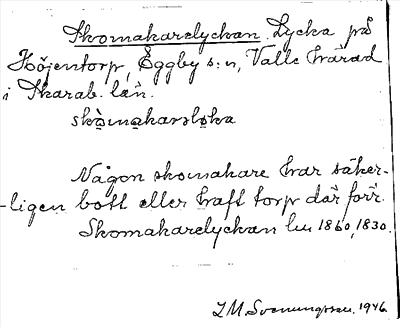 Skomakarelyckan Lycka på
Höjentorp, Eggby s:n, Valle härad
i Skarab. län.
skòmakarəlỳka
Någon skomakare har säker-
-ligen bott eller haft torp där förr.
Skomakarelyckan lm 1860, 1830.
I M. Svenungsson. 1946.